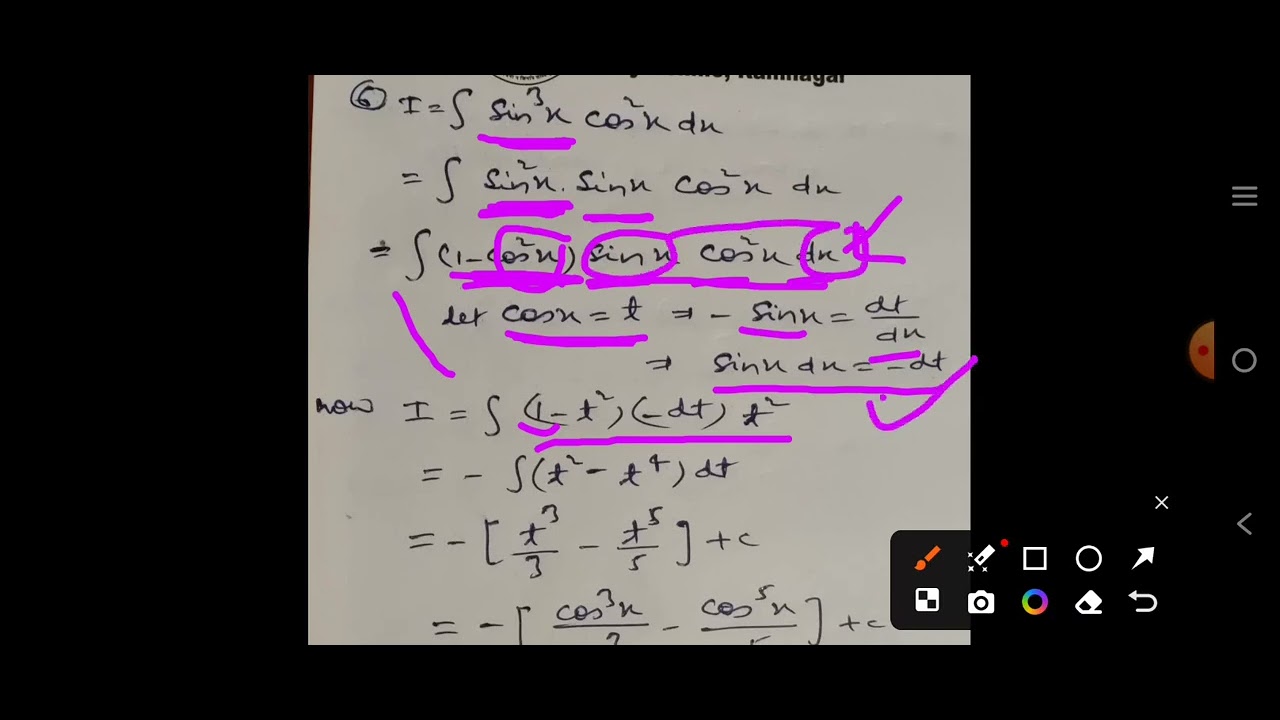 Ramnagar
⑥ I = ∫ sin³x cos²x dx
= ∫ sin²x . sinx cos²x dx
= ∫ (1 - cos²x) sinx cos²x dx
let cosx = t ⇒ - sinx = dt/dx
⇒ sinx dx = - dt
now I = ∫ (1 - t²) (-dt) t²
= - ∫ (t² - t⁴) dt
= - [ t³/3 - t⁵/5 ] + c
= - [ cos³x/3 - cos⁵x/5 ] + c